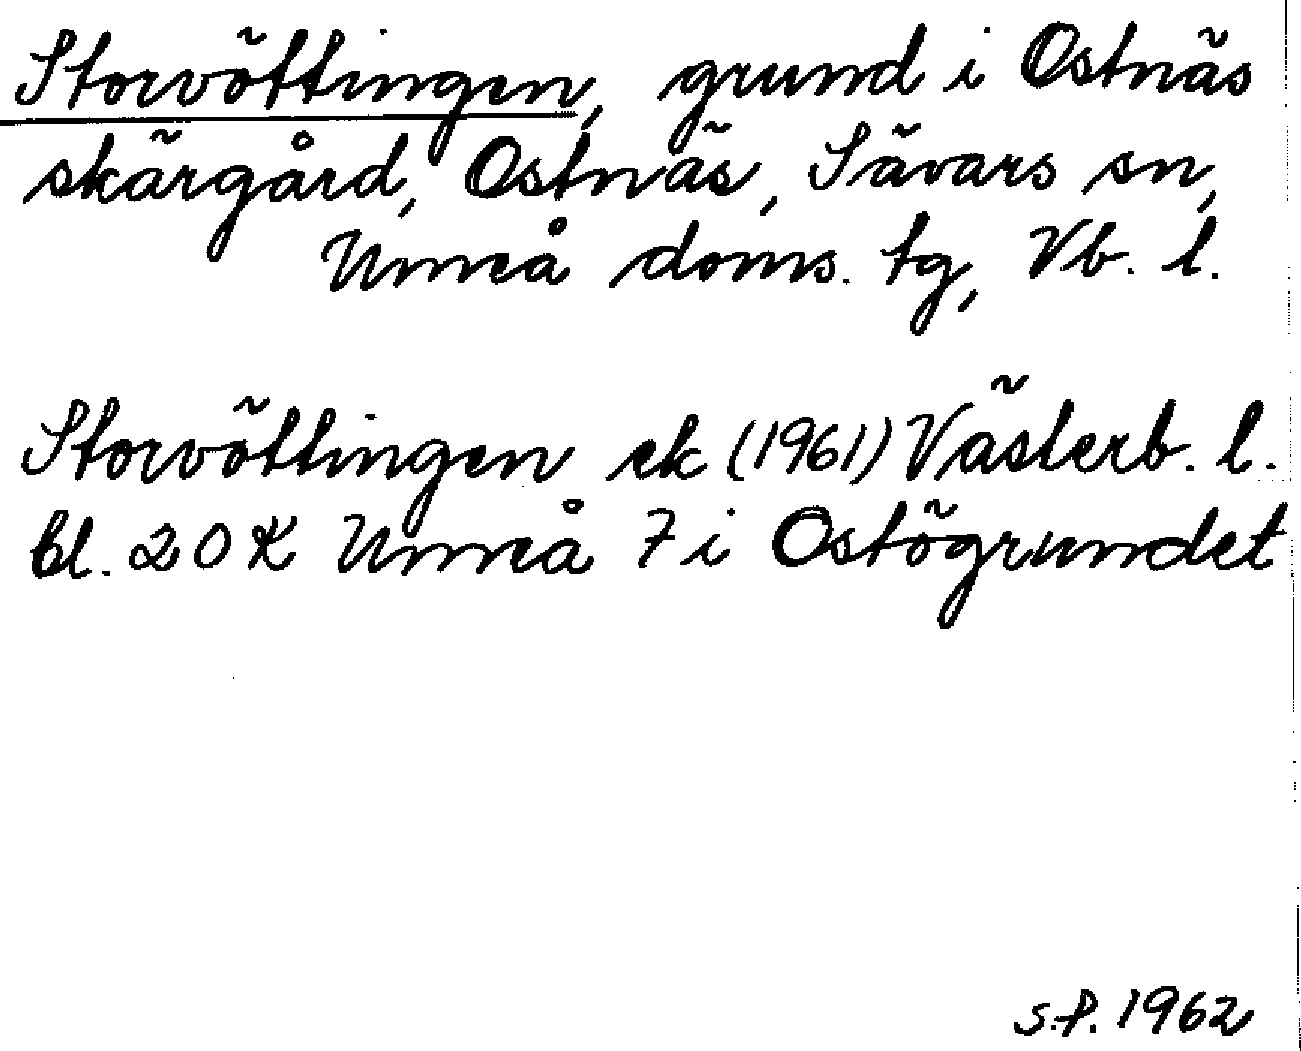 Storvöttingen, grund i Ostnäs
skärgård, Ostnäs, Sävars sn,
Umeå doms. tg, Vb. l.
Storvöttingen ek (1961) Västerb. l.
bl. 20 K Umeå 7 i Ostögrundet
s.f. 1962